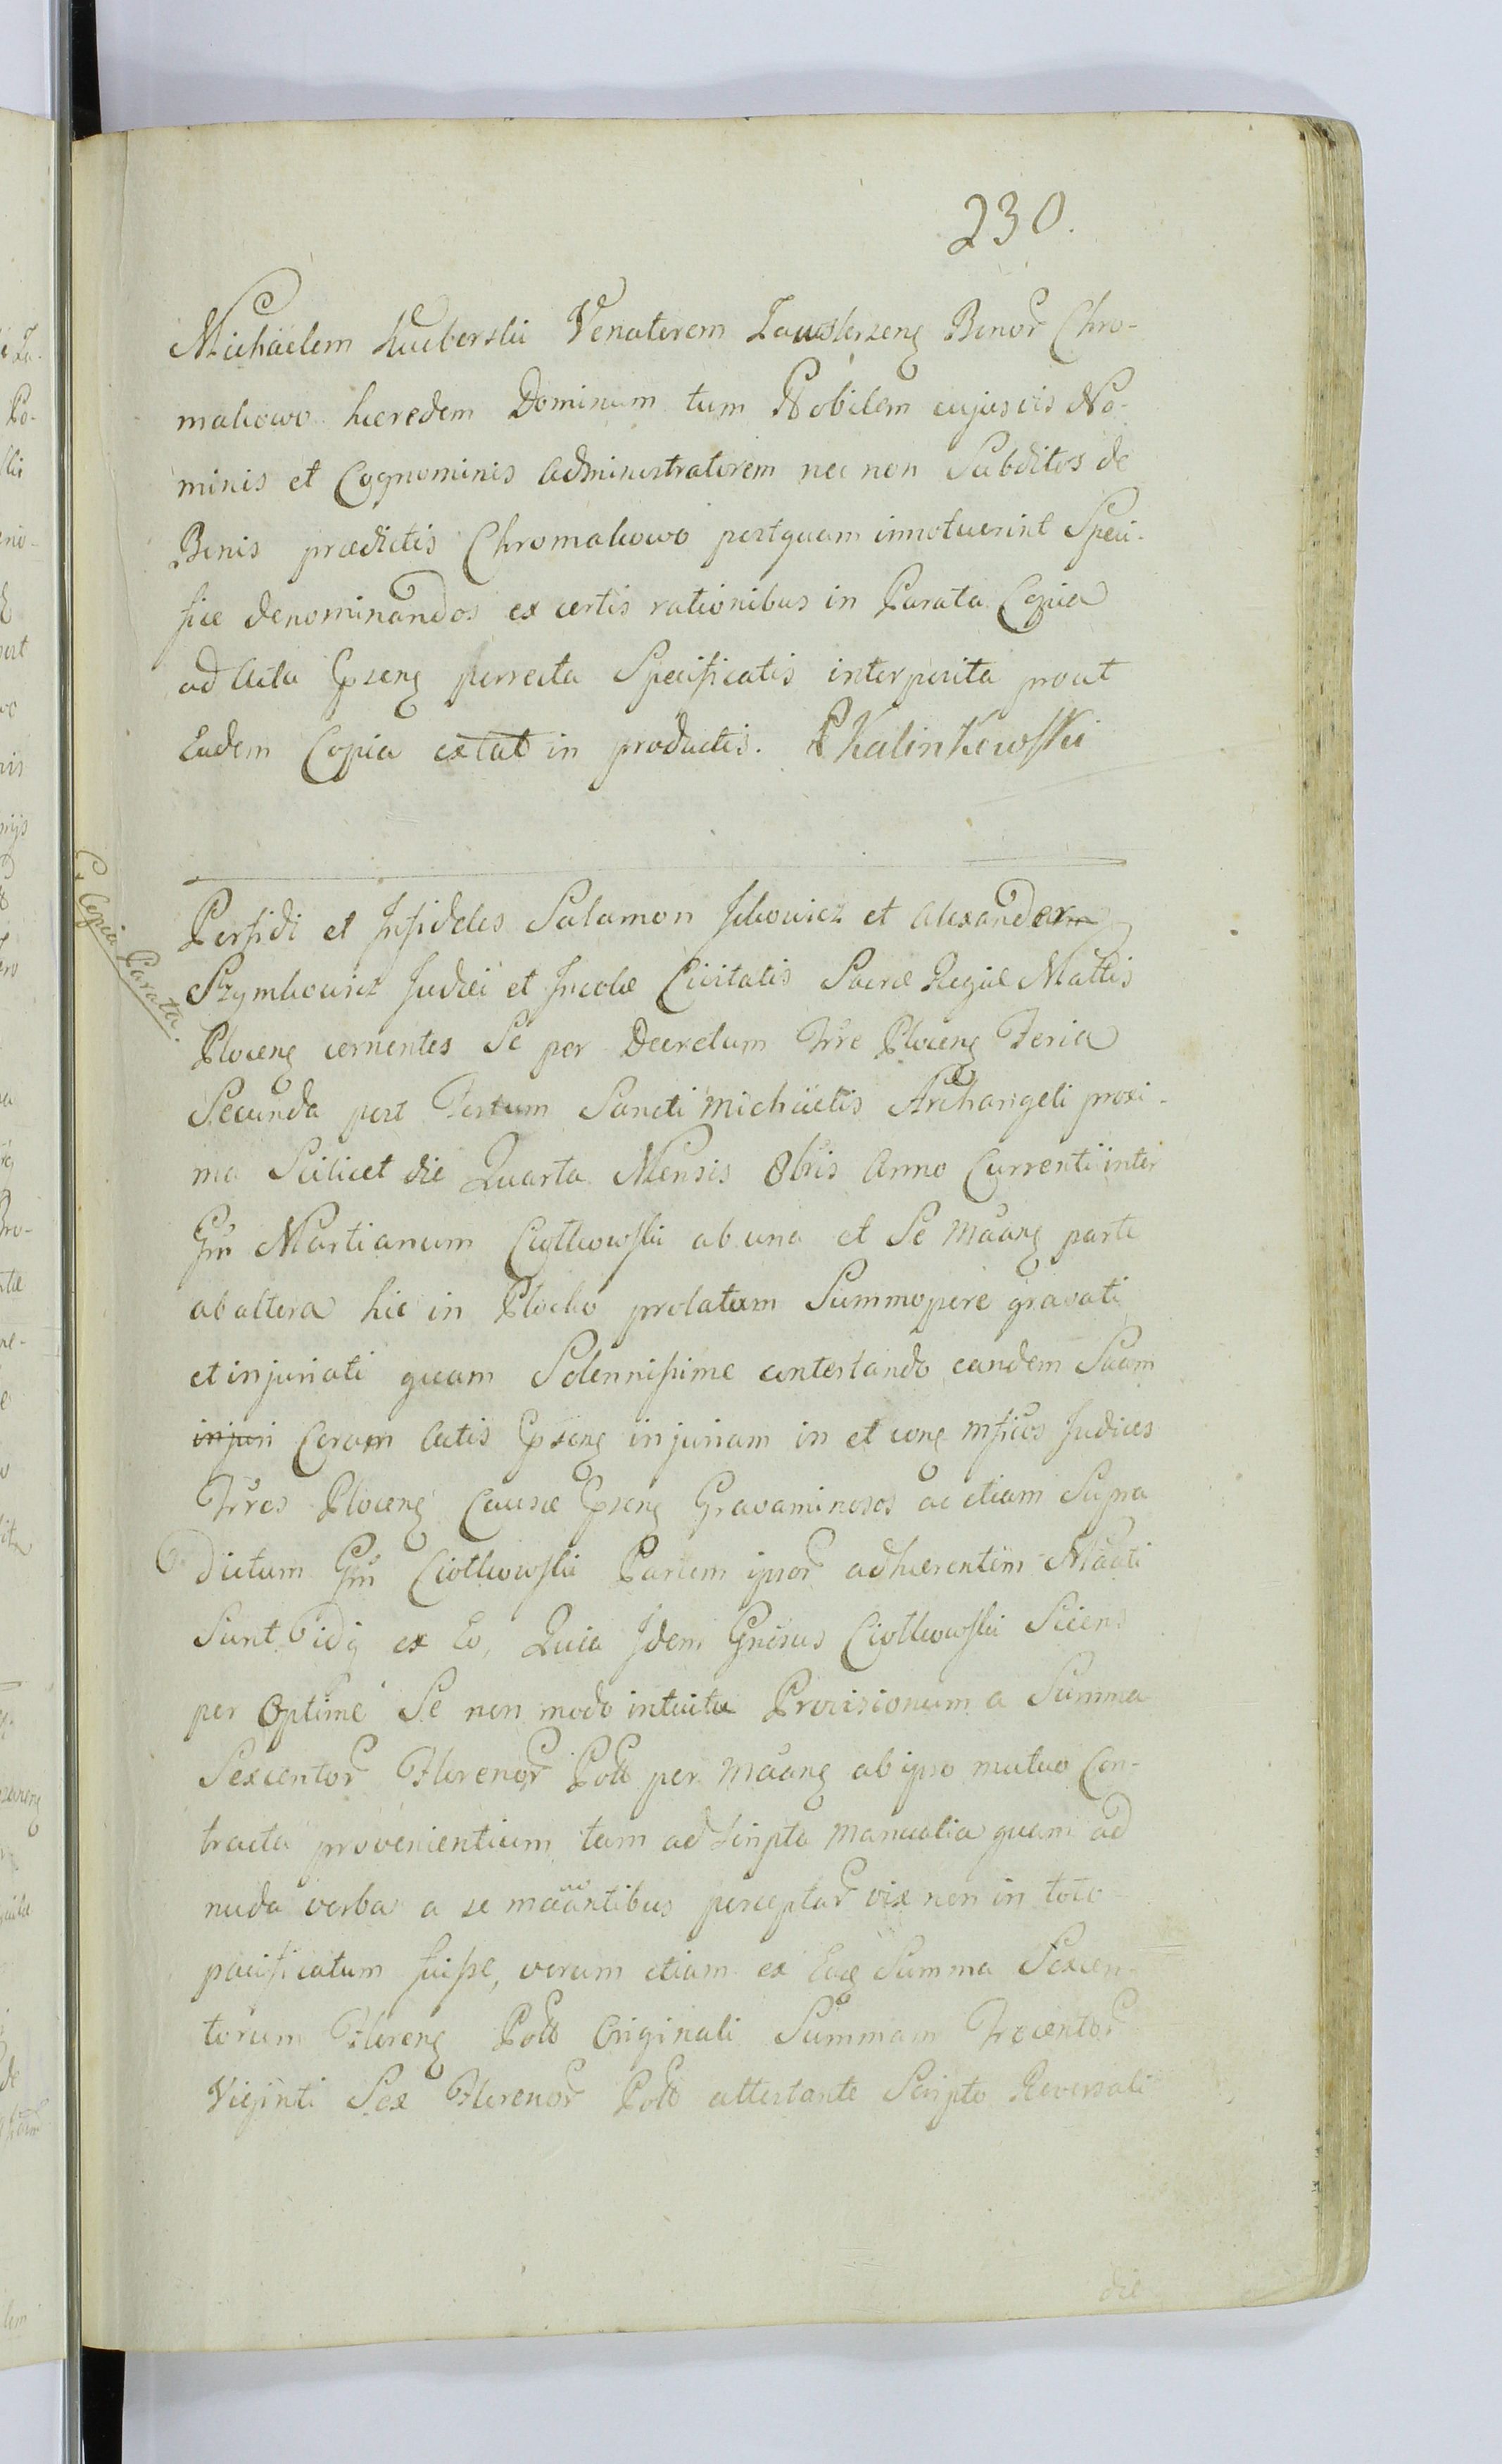 230.
Michäelem Venatorem Zawskrzeng Bonor Chro-
makowo hæredem Dominum tum Nobilem cujusvis No-
minis et Cognominis Administratorem nec non Subditos de
Bonis prædictis Chromakowo postquam innotuerint Speci-
fice denominandos ex certis rationibus in Parata Copia
ad Acta porrecta Specificatis interposita prout
Eadem Copia extat in productis. PKalinkowski
C. Copia Parata.
Perfidi et Infideles Salamon Ickowicz et Alexander
Szymkowicz Judæi et Incolæ Civitatis Sacræ Regiæ Mattis
Ploceng cernentes Se per Decretum Trre Ploceng Feria
Secunda post Festum Sancti Michäelis Archangeli proxi-
ma Scilicet die Quarta Mensis 8bris Anno Currenti inter
Gm Martianum Ciołkowski ab una et Se Maang parte
ab altera hic in Plocko prolatum Summopere gravati
et injuriati quam Solennissime contestando eandem Suam
injuri Coram Actis injuriam in et cong Mficos Judices
Trres Ploceng Causæ Gravaminosos ac etiam Supra
dictum Gm Ciołkowski Partem ipsor adhærentem Maati
Sunt idq ex Eo, Quia Idem Gnesus Ciołkowski Sciens
per optime Se non modo intuitu Provisionum a Summa
Sexcentor Florenor Poll per Maang ab ipso mutuo Con-
tracta provenientium tam ad Scripta Manualia quam ad
nuda verba a se maantibus perceptar vix non in toto
pacificatum fuisse, verum etiam ex Eaq Summa Sexcen-
torum Floreng Poll Originali Summam Trecentor
Viginti Sex Florenor Poll attestante Scripto Reversali
die